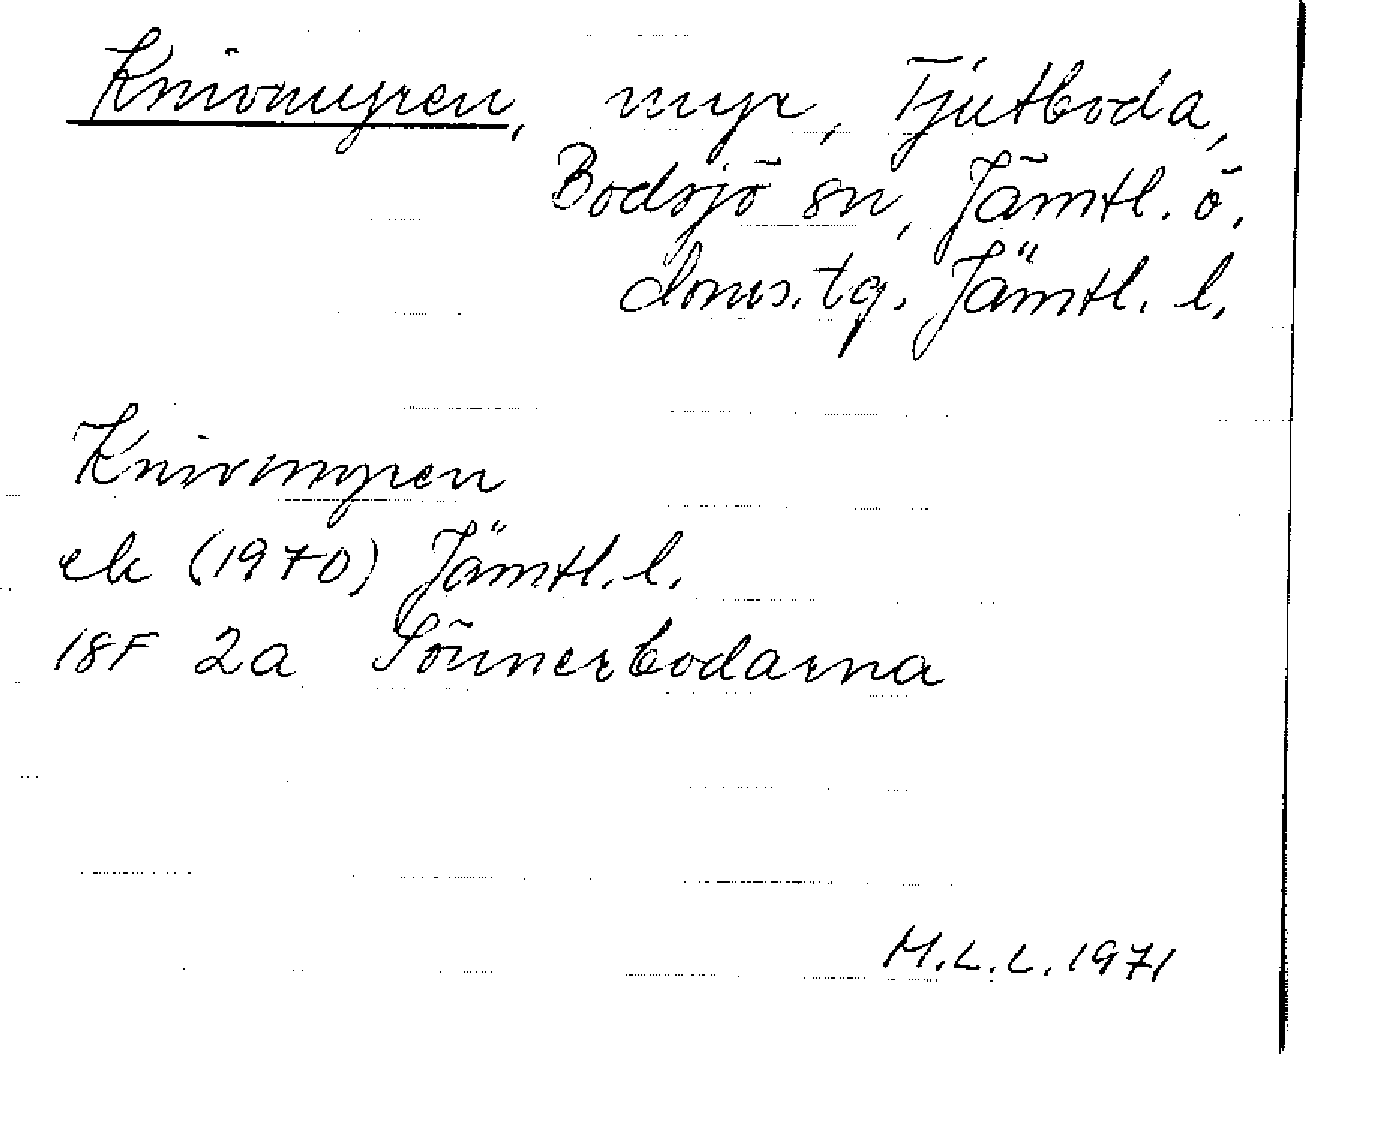 Knivmyren, myr, Fjutboda,
Bodsjö sn, Jämtl. ö.
doms.tg. Jämtl. l.
Knivmyren
ek (1970) Jämtl. l.
18F 2a Sönnerbodarna
M.L.L. 1971